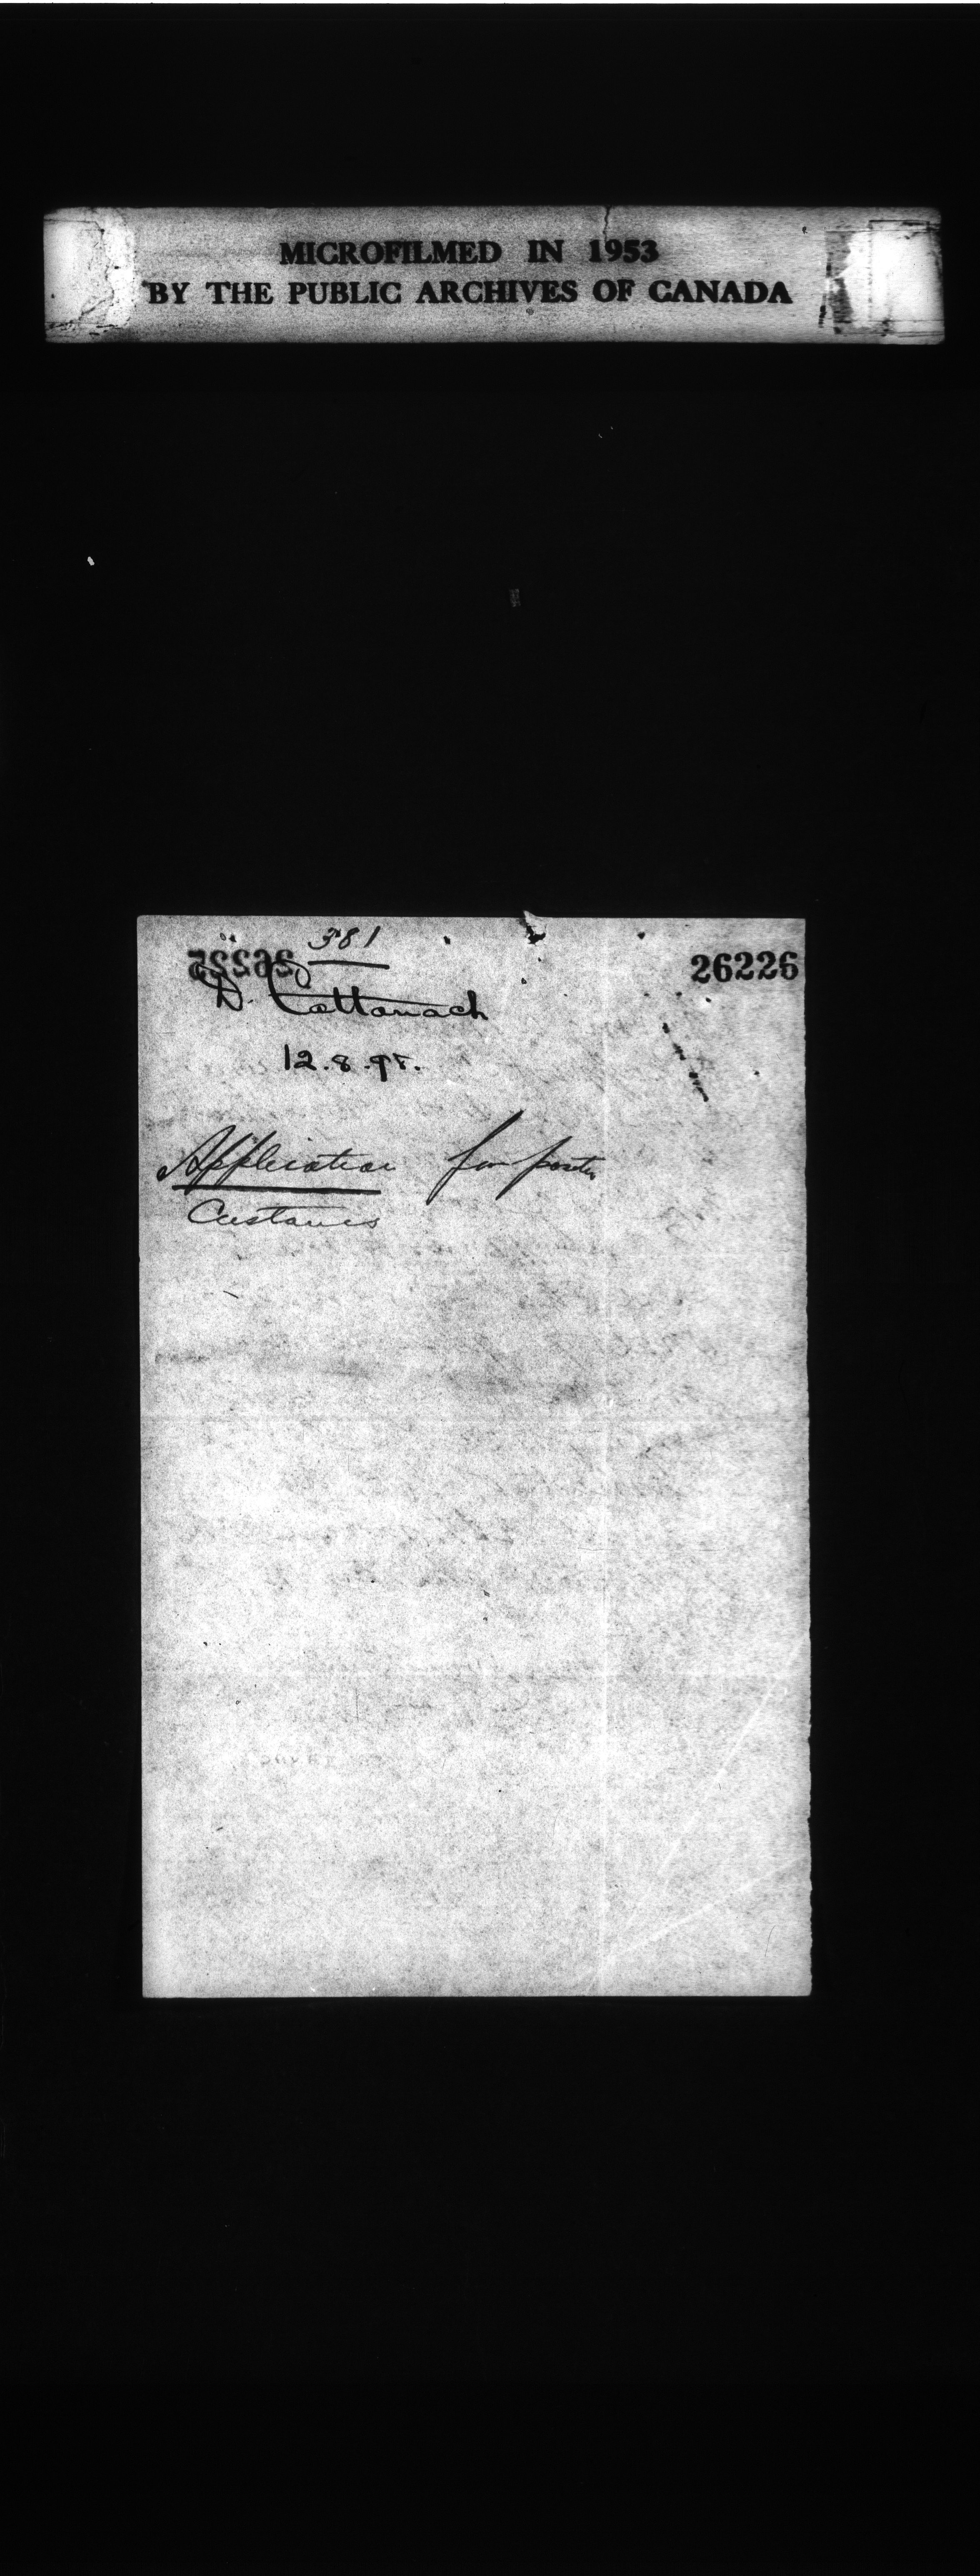 MICROFILMED IN 1953
BY THE PUBLIC ARCHIVES OF CANADA
381
26225
26226
D. Cattanach
12.8.98.
Application for
Customs